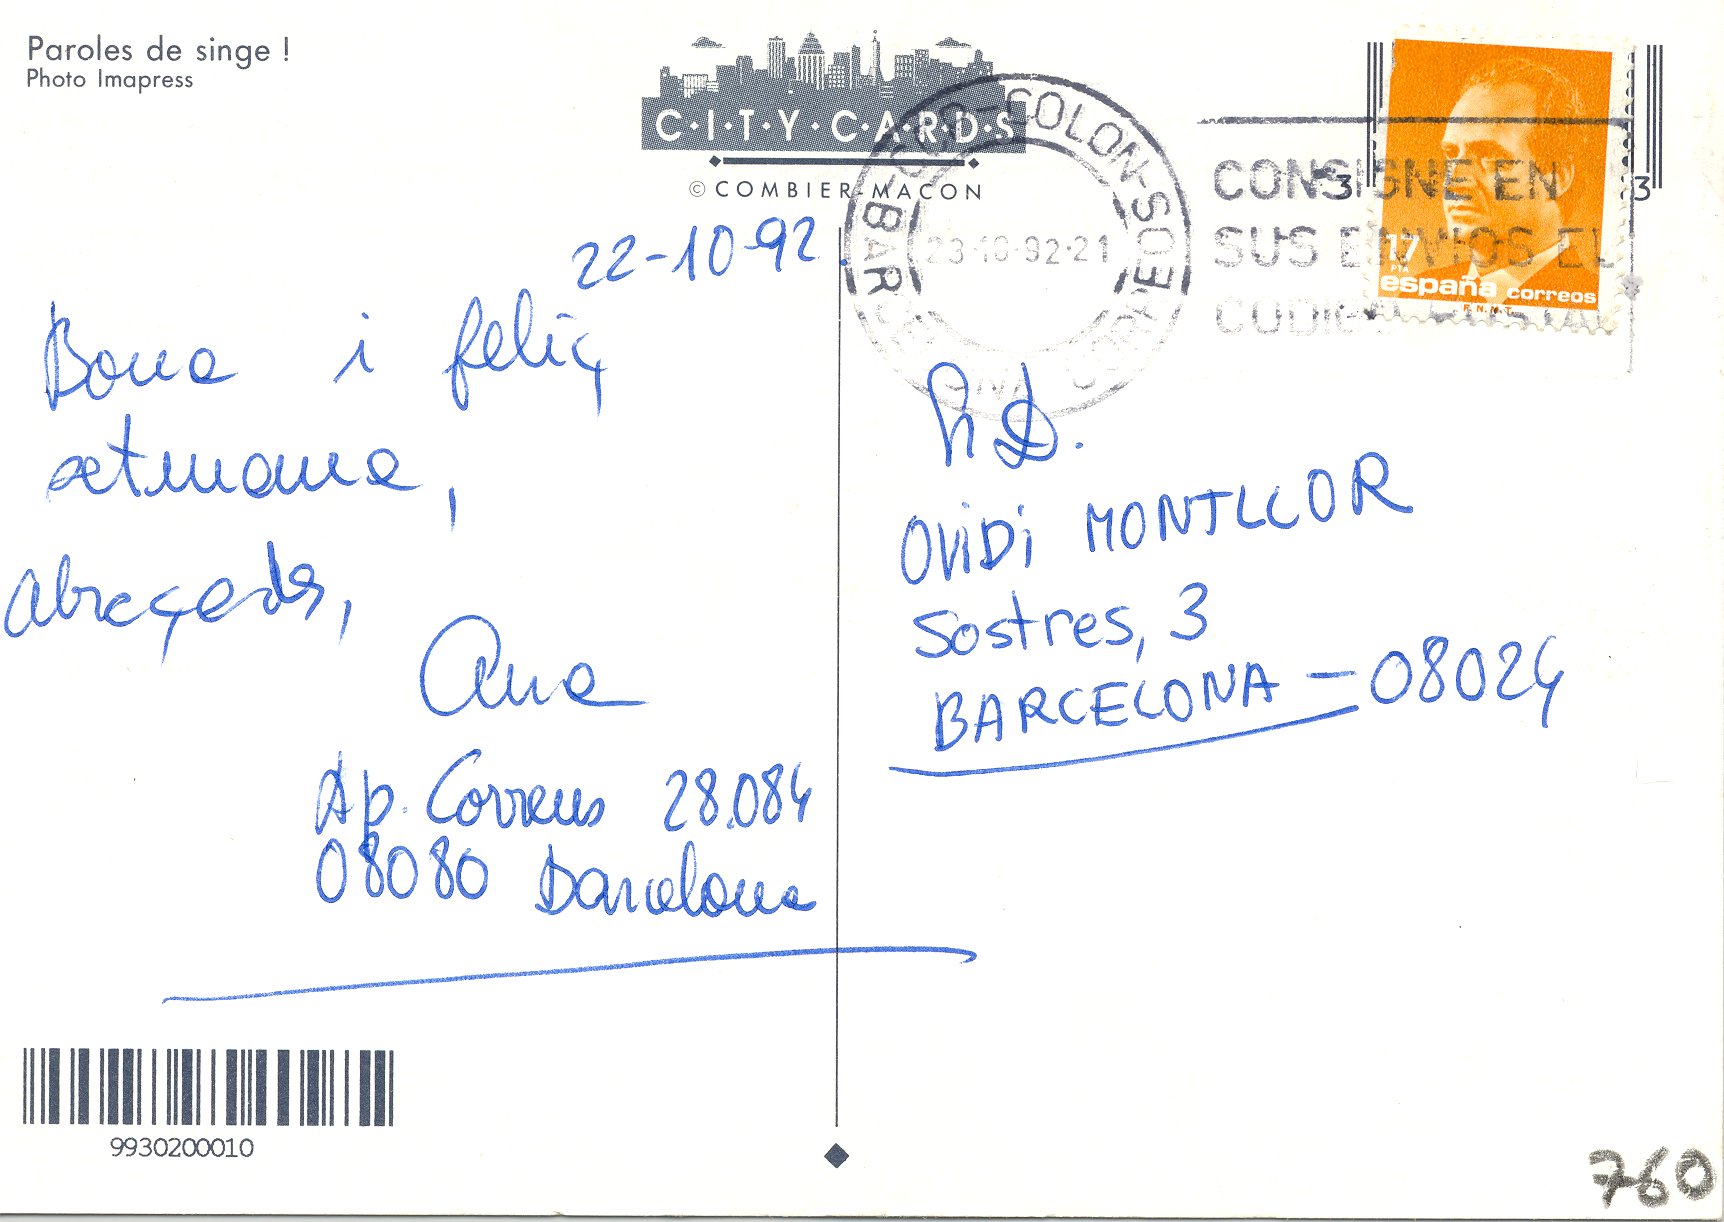 Paroles de singe !
Photo Imapress
C·I·T·Y·C·A·R·D·S
© COMBIER-MACON
22-10-92.
Bona i feliç
setmana,
abraçada,
Ana
Ap. Correus 28.084
08080 Barcelona
9930200010
COLON-
23-10-92-21
CONSIGNE EN
SUS ENVIOS EL
CODIGO POSTAL
3 3
17
PTA
españa correos
F.N.M.T.
OViDi MONTLLOR
Sostres, 3
BARCELONA - 08024
760